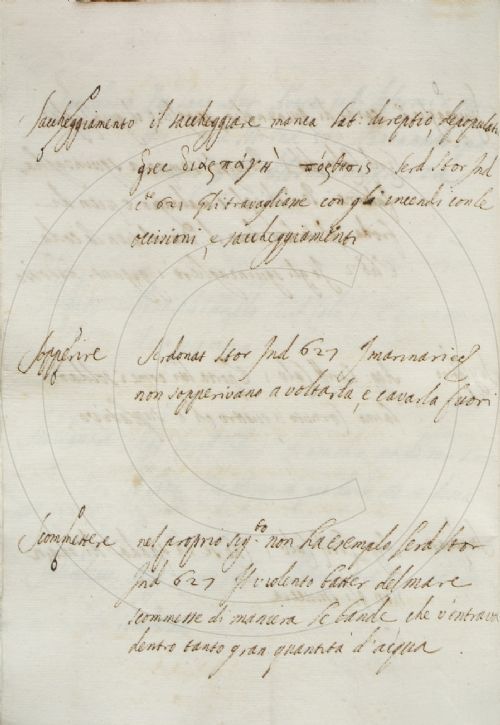 Saccheggiamento il saccheggiare manca Lat: direptio, depopulati
grec διαρπαγὴ πόρθησις Serd Stor Ind
c.o 627 gli travagliasse con gli incendi con le
occisioni, e saccheggiamenti
Sopperire Serdonat Stor Ind 627 I marinari
non sopperivano a voltarla, e cavarla fuori
Scommettere nel proprio sig.to non ha esemplo Serd Stor
Ind 627 Il violento batter del mare
scommesse di maniera le bande che v'entrava
dentro tanto gran quantità d'acqua.